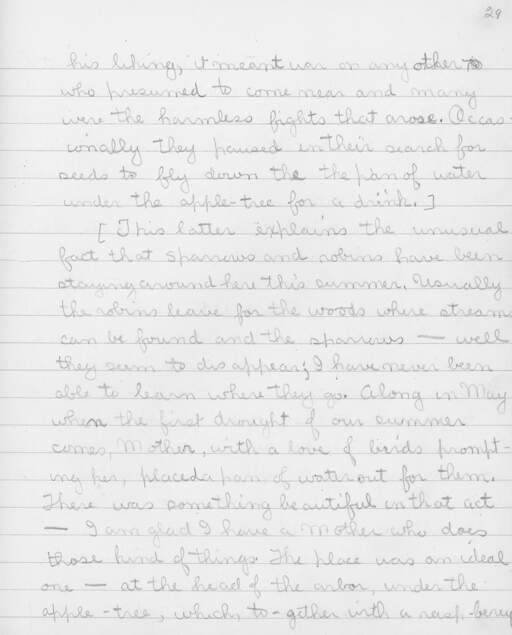 29
his liking, it meant war on any other
who presumed to come near and many
were the harmless fights that arose. Occas-
ionally they paused in their search for
seeds to fly down the the pan of water
under the apple-tree for a drink.]
[This latter explains the unusual
fact that sparrows and robins have been
staying around here this summer. Usually
the robins leave for the woods where streams
can be found and the sparrows — well
they seem to disappear; I have never been
able to learn where they go. Along in May
when the first drought of our summer
comes, Mother, with a love of birds prompt-
ing her, placed a pan of water out for them.
There was something beautiful in that act
— I am glad I have a Mother who does
those kind of things. The place was an ideal
one — at the head of the arbor, under the
apple-tree, which, to-gether with a rasp-berry